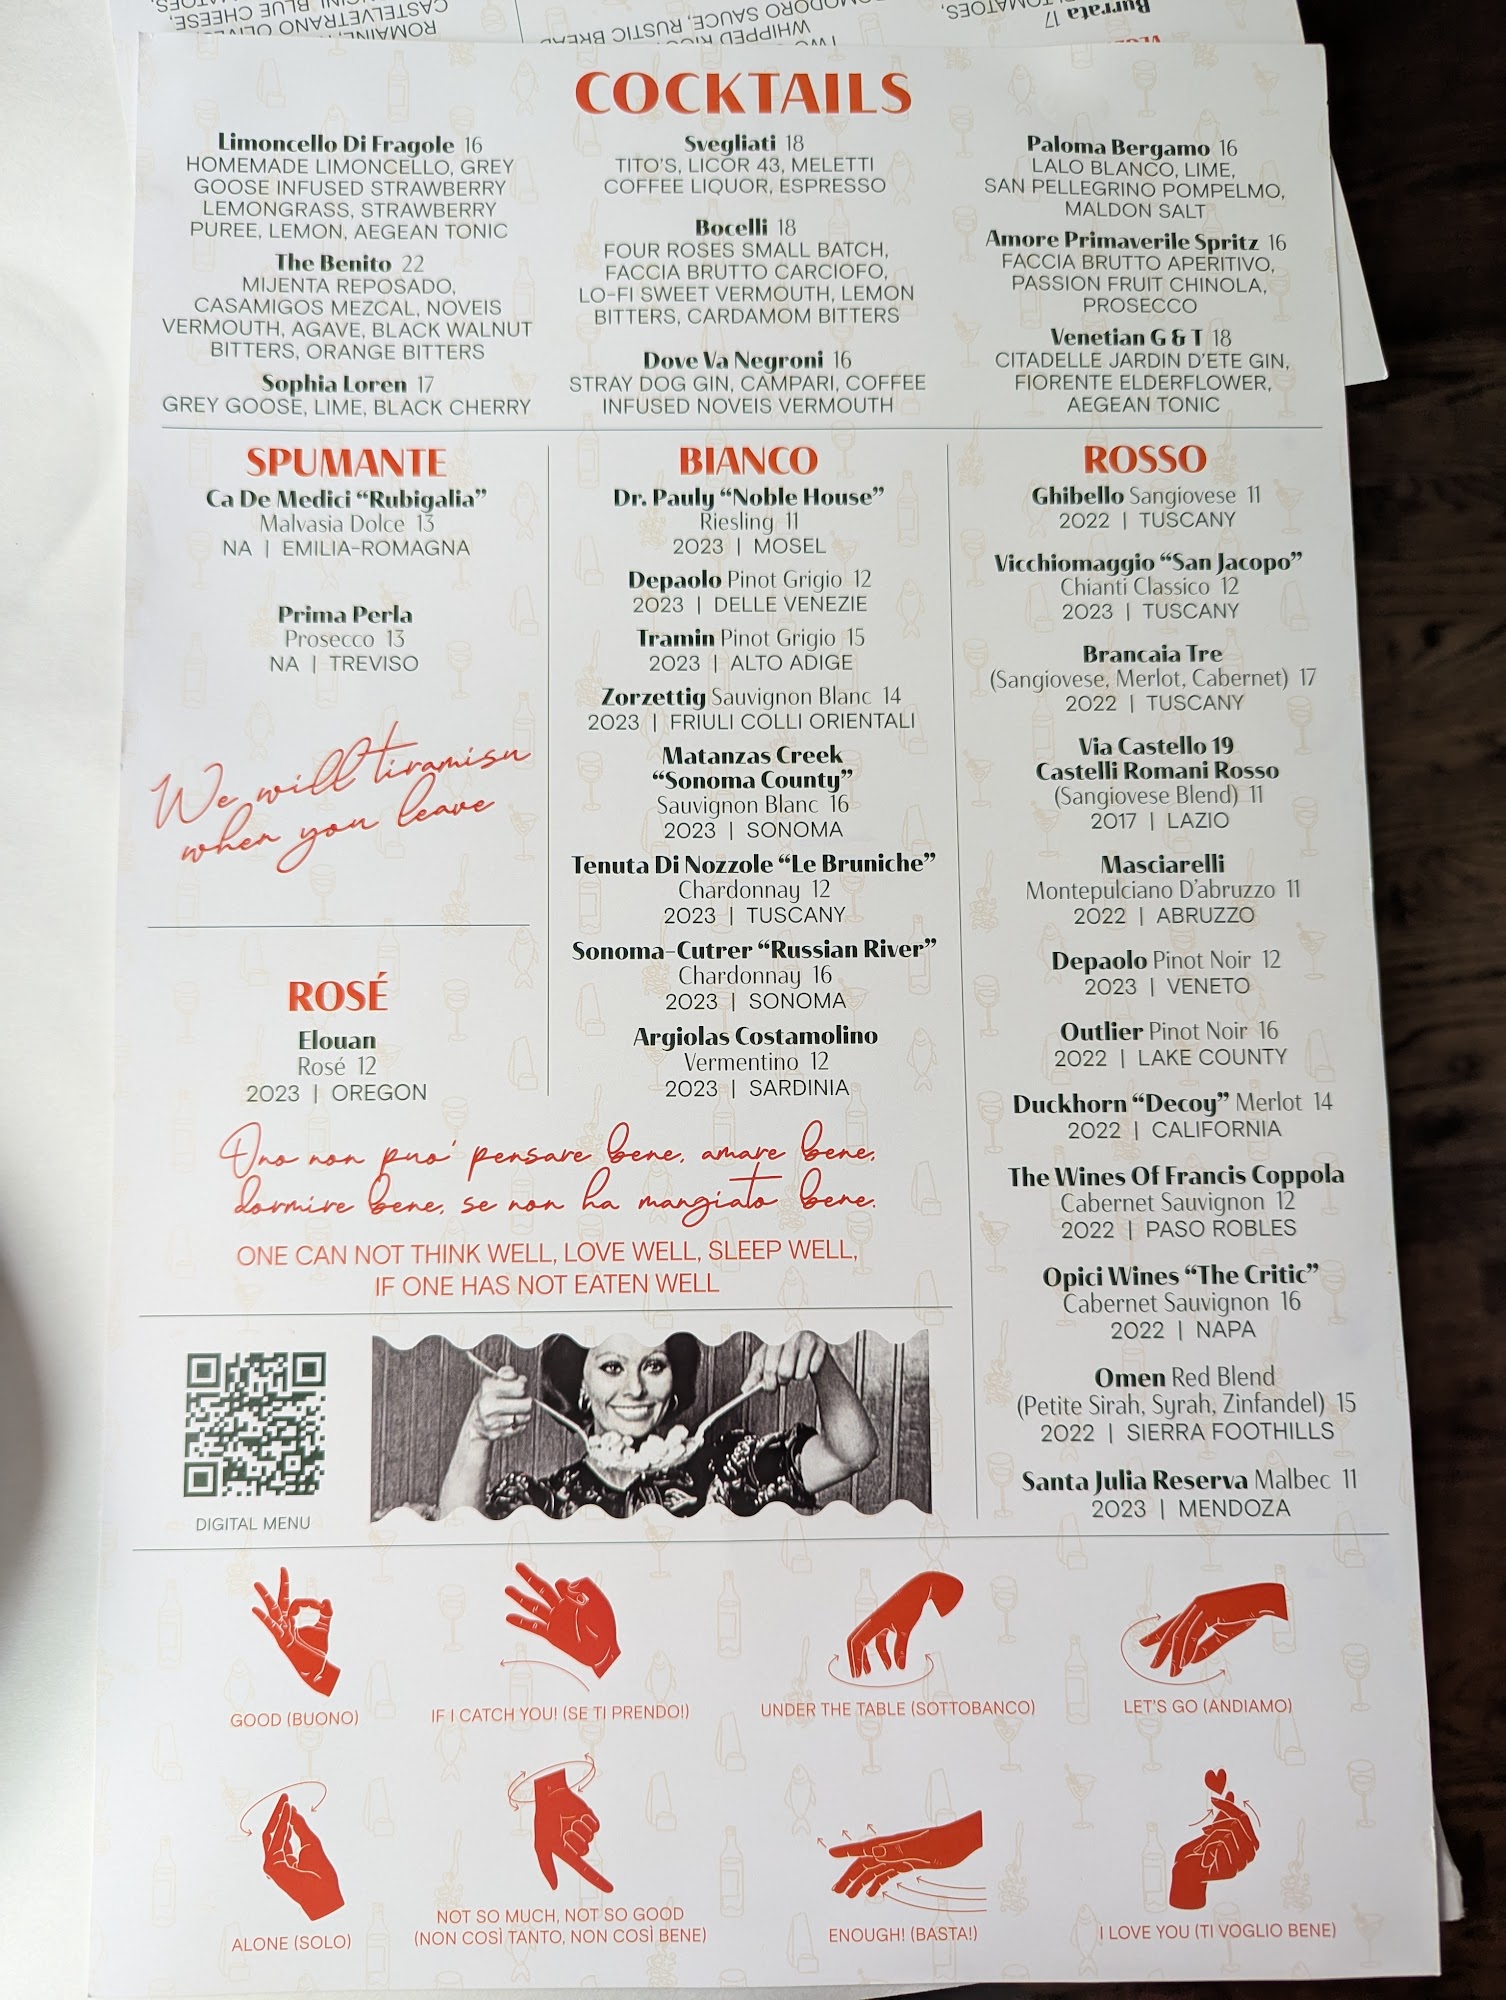 CASTELVETRANO OLIVES
WHIPPED
POMODORO SAUCE, RUSTIC BREAD
Burrata 17
COCKTAILS
Limoncello Di Fragole 16
HOMEMADE LIMONCELLO, GREY
GOOSE INFUSED STRAWBERRY
LEMONGRASS, STRAWBERRY
PUREE, LEMON, AEGEAN TONIC
The Benito 22
MIJENTA REPOSADO,
CASAMIGOS MEZCAL, NOVEIS
VERMOUTH, AGAVE, BLACK WALNUT
BITTERS, ORANGE BITTERS
Sophia Loren 17
GREY GOOSE, LIME, BLACK CHERRY
Svegliati 18
TITO'S, LICOR 43, MELETTI
COFFEE LIQUOR, ESPRESSO
Bocelli 18
FOUR ROSES SMALL BATCH,
FACCIA BRUTTO CARCIOFO,
LO-FI SWEET VERMOUTH, LEMON
BITTERS, CARDAMOM BITTERS
Dove Va Negroni 16
STRAY DOG GIN, CAMPARI, COFFEE
INFUSED NOVEIS VERMOUTH
Paloma Bergamo 16
LALO BLANCO, LIME,
SAN PELLEGRINO POMPELMO,
MALDON SALT
Amore Primaverile Spritz 16
FACCIA BRUTTO APERITIVO,
PASSION FRUIT CHINOLA,
PROSECCO
Venetian G & T 18
CITADELLE JARDIN D'ETE GIN,
FIORENTE ELDERFLOWER,
AEGEAN TONIC
SPUMANTE
Ca De Medici “Rubigalia”
Malvasia Dolce 13
NA | EMILIA-ROMAGNA
Prima Perla
Prosecco 13
NA | TREVISO
We will tiramisu
when you leave
ROSÉ
Elouan
Rosé 12
2023 | OREGON
BIANCO
Dr. Pauly “Noble House”
Riesling 11
2023 | MOSEL
Depaolo Pinot Grigio 12
2023 | DELLE VENEZIE
Tramin Pinot Grigio 15
2023 | ALTO ADIGE
Zorzettig Sauvignon Blanc 14
2023 | FRIULI COLLI ORIENTALI
Matanzas Creek
“Sonoma County”
Sauvignon Blanc 16
2023 | SONOMA
Tenuta Di Nozzole “Le Bruniche”
Chardonnay 12
2023 | TUSCANY
Sonoma-Cutrer “Russian River”
Chardonnay 16
2023 | SONOMA
Argiolas Costamolino
Vermentino 12
2023 | SARDINIA
ROSSO
Ghibello Sangiovese 11
2022 | TUSCANY
Vicchiomaggio “San Jacopo”
Chianti Classico 12
2023 | TUSCANY
Brancaia Tre
(Sangiovese, Merlot, Cabernet) 17
2022 | TUSCANY
Via Castello 19
Castelli Romani Rosso
(Sangiovese Blend) 11
2017 | LAZIO
Masciarelli
Montepulciano D'abruzzo 11
2022 | ABRUZZO
Depaolo Pinot Noir 12
2023 | VENETO
Outlier Pinot Noir 16
2022 | LAKE COUNTY
Duckhorn “Decoy” Merlot 14
2022 | CALIFORNIA
The Wines Of Francis Coppola
Cabernet Sauvignon 12
2022 | PASO ROBLES
Opici Wines “The Critic”
Cabernet Sauvignon 16
2022 | NAPA
Omen Red Blend
(Petite Sirah, Syrah, Zinfandel) 15
2022 | SIERRA FOOTHILLS
Santa Julia Reserva Malbec 11
2023 | MENDOZA
Uno non puo' pensare bene, amare bene,
dormire bene, se non ha mangiato bene.
ONE CAN NOT THINK WELL, LOVE WELL, SLEEP WELL,
IF ONE HAS NOT EATEN WELL
DIGITAL MENU
GOOD (BUONO)
IF I CATCH YOU! (SE TI PRENDO!)
UNDER THE TABLE (SOTTOBANCO)
LET'S GO (ANDIAMO)
ALONE (SOLO)
NOT SO MUCH, NOT SO GOOD
(NON COSÌ TANTO, NON COSÌ BENE)
ENOUGH! (BASTA!)
I LOVE YOU (TI VOGLIO BENE)